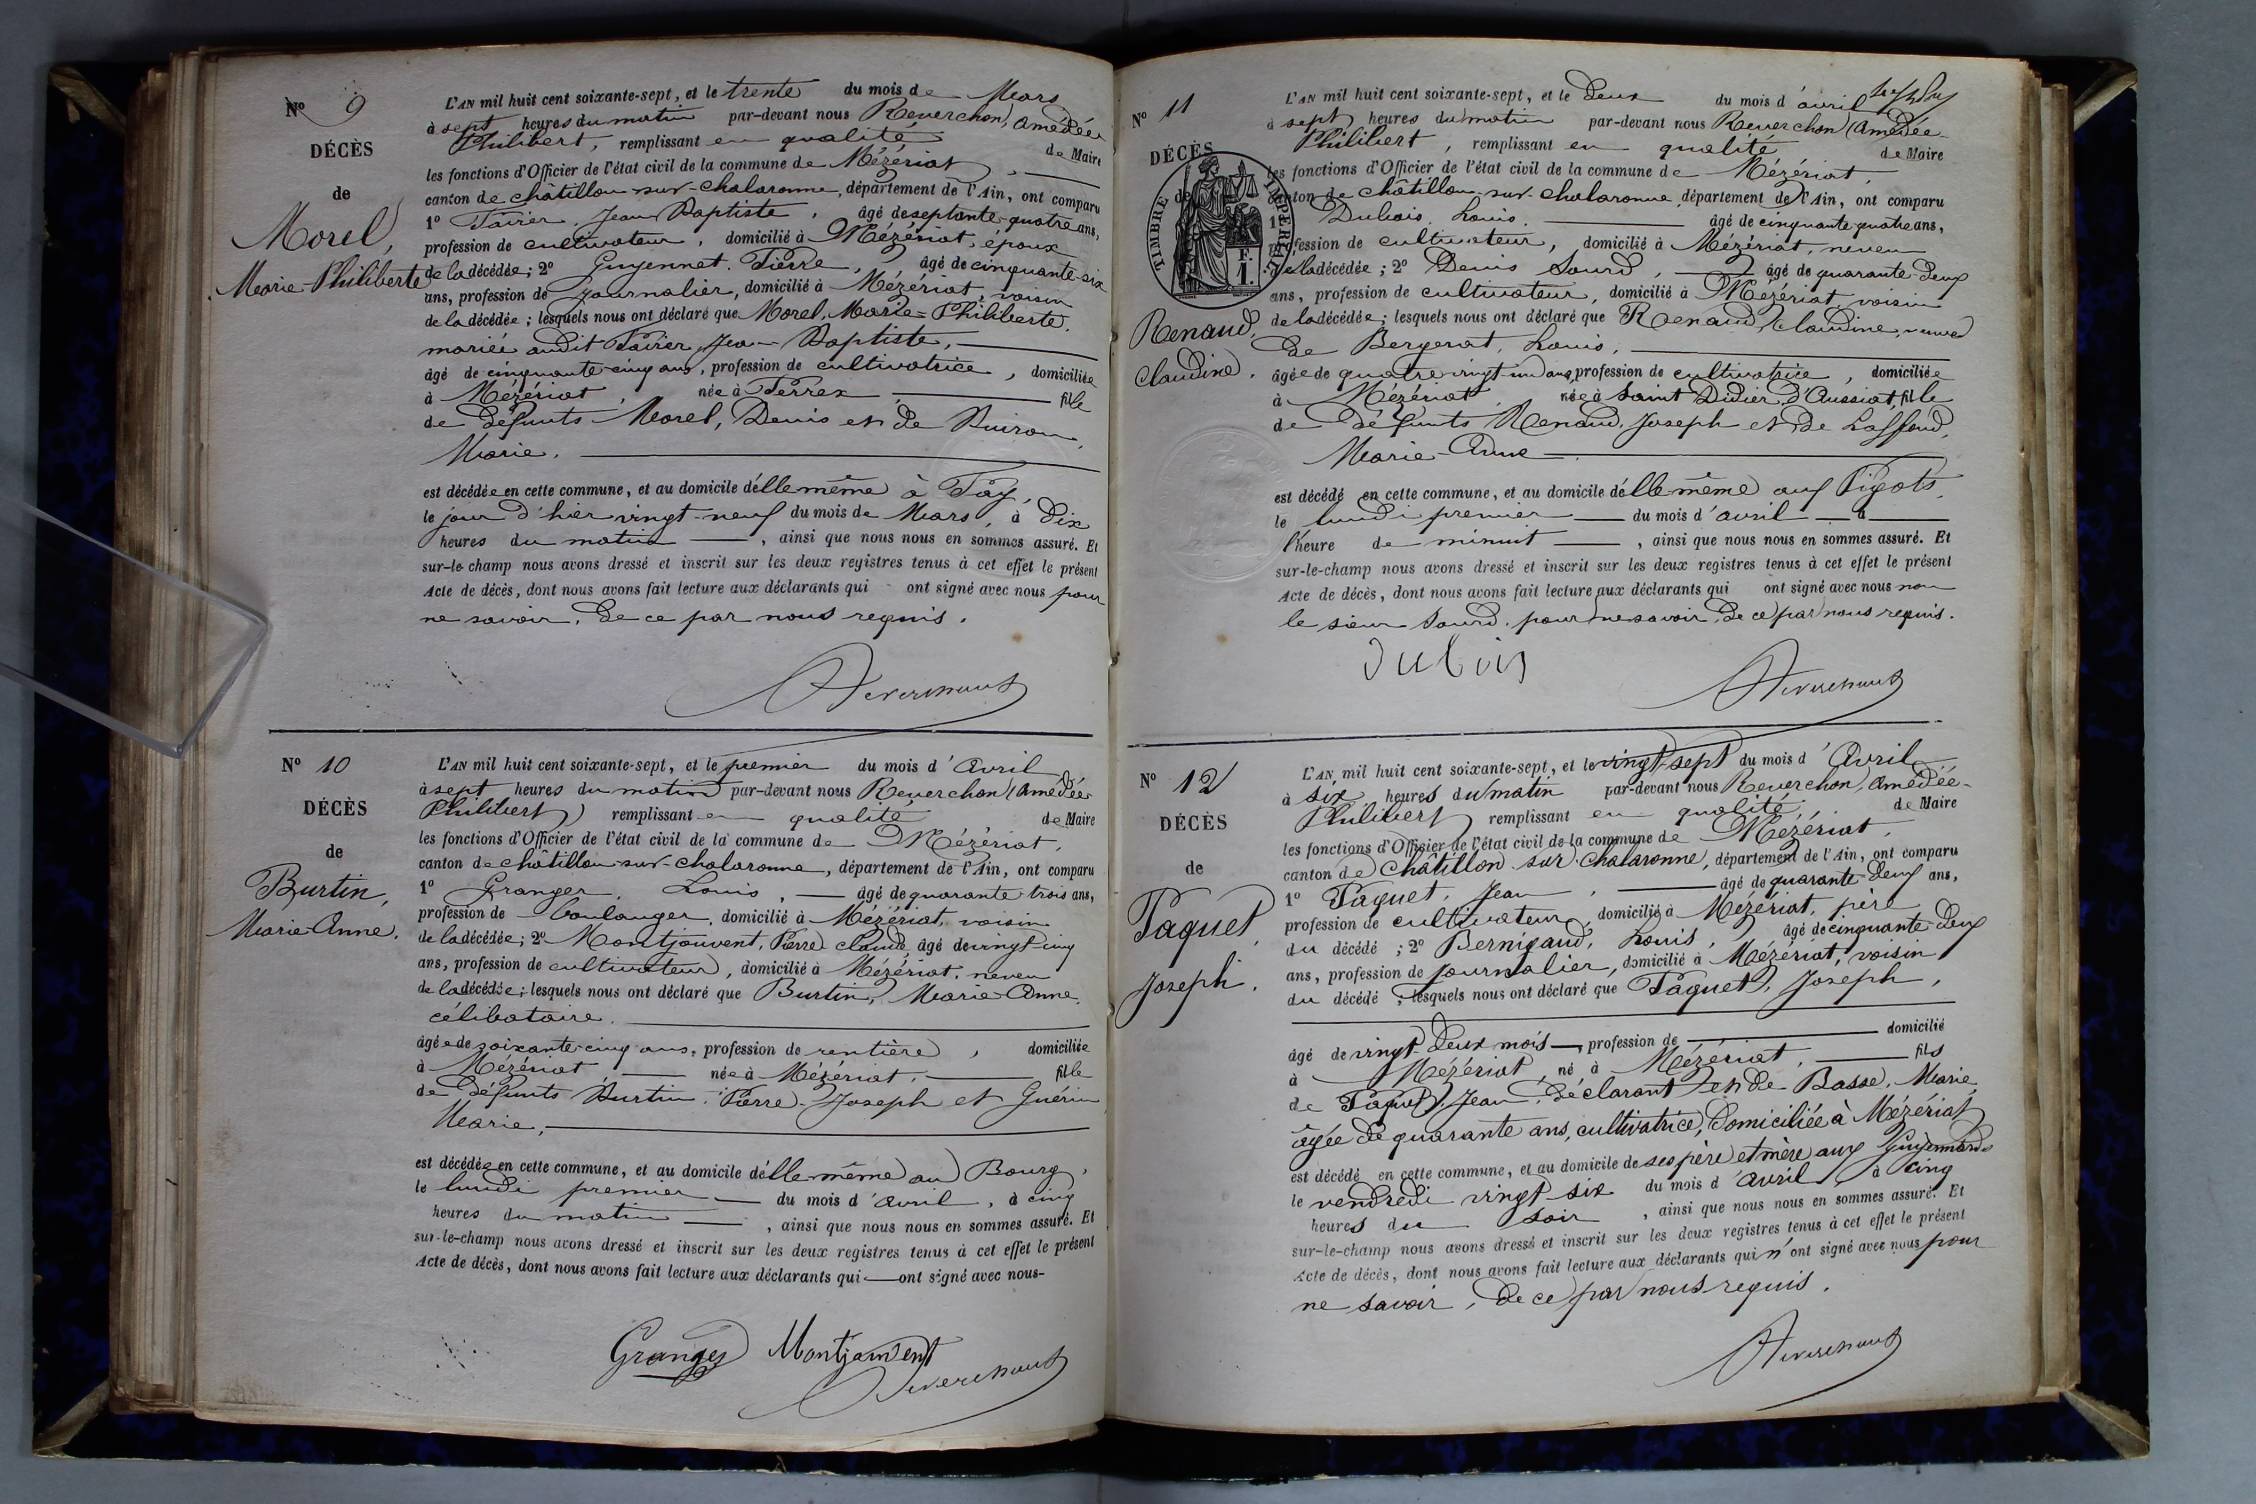 Nº 9
DÉCÈS
de
Morel,
Marie-Philiberte
L'AN mil huit cent soixante-sept, et le trente du mois de Mars
à sept heures du matin par-devant nous Reverchon, Amédée
Philibert, remplissant en qualité de Maire
les fonctions d'Officier de l'état civil de la commune de Mézériat,
canton de châtillon-sur-chalaronne, département de l'Ain, ont comparu
1º Favier, Jean Baptiste, âgé de septante-quatre ans,
profession de cultivateur, domicilié à Mézériat, époux
de la décédée; 2º Guyennet, Pierre, âgé de cinquante-six
ans, profession de journalier, domicilié à Mézériat, voisin
de la décédée; lesquels nous ont déclaré que Morel, Marie=Philiberte,
mariée audit Favier, Jean-Baptiste,
âgé de cinquante-cinq ans, profession de cultivatrice, domiciliée
à Mézériat, née à Perrex, fille
de défunts Morel, Denis et de
Marie.
est décédée en cette commune, et au domicile d'elle même à
le jour d'hier vingt-neuf du mois de Mars, à dix
heures du matin, ainsi que nous nous en sommes assuré. Et
sur-le-champ nous avons dressé et inscrit sur les deux registres tenus à cet effet le présent
Acte de décès, dont nous avons fait lecture aux déclarants qui ont signé avec nous pour
ne savoir, de ce par nous requis.
AReverchon
Nº 10
DÉCÈS
de
Burtin,
Marie-Anne.
L'AN mil huit cent soixante-sept, et le premier du mois d'Avril
à sept heures du matin par-devant nous Reverchon, Amédée
Philibert, remplissant en qualité de Maire
les fonctions d'Officier de l'état civil de la commune de Mézériat,
canton de châtillon-sur-chalaronne, département de l'Ain, ont comparu
1º Granger, Louis, âgé de quarante trois ans,
profession de boulanger, domicilié à Mézériat, voisin
de la décédée; 2º Montjouvent, Pierre claude, âgé de vingt cinq
ans, profession de cultivateur, domicilié à Mézériat, neveu
de la décédée; lesquels nous ont déclaré que Burtin, Marie Anne,
célibataire,
âgée de soixante cinq ans, profession de rentière, domiciliée
à Mézériat, née à Mézériat, fille
de défunts Burtin, Pierre-Joseph et Guérin
Marie,
est décédée en cette commune, et au domicile d'elle même au Bourg,
le lundi premier du mois d'avril, à cinq
heures du matin, ainsi que nous nous en sommes assuré. Et
sur-le-champ nous avons dressé et inscrit sur les deux registres tenus à cet effet le présent
Acte de décès, dont nous avons fait lecture aux déclarants qui ont signé avec nous-
Granger Montjouvent
AReverchon
Nº 11
DÉCÈS
de
TIMBRE IMPÉRIAL
1 F.
Renaud,
Claudine.
L'AN mil huit cent soixante-sept, et le deux du mois d'avril
à sept heures du matin par-devant nous Reverchon, Amédée
Philibert, remplissant en qualité de Maire
les fonctions d'Officier de l'état civil de la commune de Mézériat,
canton de châtillon-sur-chalaronne, département de l'Ain, ont comparu
1º Dubois, Louis, âgé de cinquante quatre ans,
profession de cultivateur, domicilié à Mézériat, neveu
de la décédée; 2º Denis Sourd, âgé de quarante-deux
ans, profession de cultivateur, domicilié à Mézériat, voisin
de la décédée; lesquels nous ont déclaré que Renaud, Claudine, veuve
de Bergerat, Louis,
âgée de quatre vingt-un ans, profession de cultivatrice, domiciliée
à Mézériat, née à Saint Didier d'Aussiat, fille
de défunts Renaud, Joseph et de
Marie-Anne
est décédé en cette commune, et au domicile d'elle même aux
le lundi premier du mois d'avril à
l'heure de minuit, ainsi que nous nous en sommes assuré. Et
sur-le-champ nous avons dressé et inscrit sur les deux registres tenus à cet effet le présent
Acte de décès, dont nous avons fait lecture aux déclarants qui ont signé avec nous non
le sieur Sourd, pour ne savoir, de ce par nous requis.
dubois
AReverchon
Nº 12
DÉCÈS
de
Paquet,
Joseph.
L'AN mil huit cent soixante-sept, et le vingt-sept du mois d'Avril
à six heures du matin par-devant nous Reverchon, Amédée-
Philibert, remplissant en qualité de Maire
les fonctions d'Officier de l'état civil de la commune de Mézériat,
canton de Châtillon-sur-chalaronne, département de l'Ain, ont comparu
1º Paquet, Jean, âgé de quarante-deux ans,
profession de cultivateur, domicilié à Mézériat, père
du décédé; 2º Bernigaud, Louis, âgé de cinquante-deux
ans, profession de journalier, domicilié à Mézériat, voisin
du décédé; lesquels nous ont déclaré que Paquet, Joseph,
âgé de vingt-deux mois, profession de domicilié
à Mézériat, né à Mézériat, fils
de Paquet, Jean, déclarant et de Basse, Marie,
âgée de quarante ans, cultivatrice, domiciliée à Mézériat
est décédé en cette commune, et au domicile de ses père et mère aux Guyennards
le vendredi vingt-six du mois d'avril, à cinq
heures du soir, ainsi que nous nous en sommes assuré. Et
sur-le-champ nous avons dressé et inscrit sur les deux registres tenus à cet effet le présent
Acte de décès, dont nous avons fait lecture aux déclarants qui n'ont signé avec nous pour
ne savoir, de ce par nous requis.
AReverchon